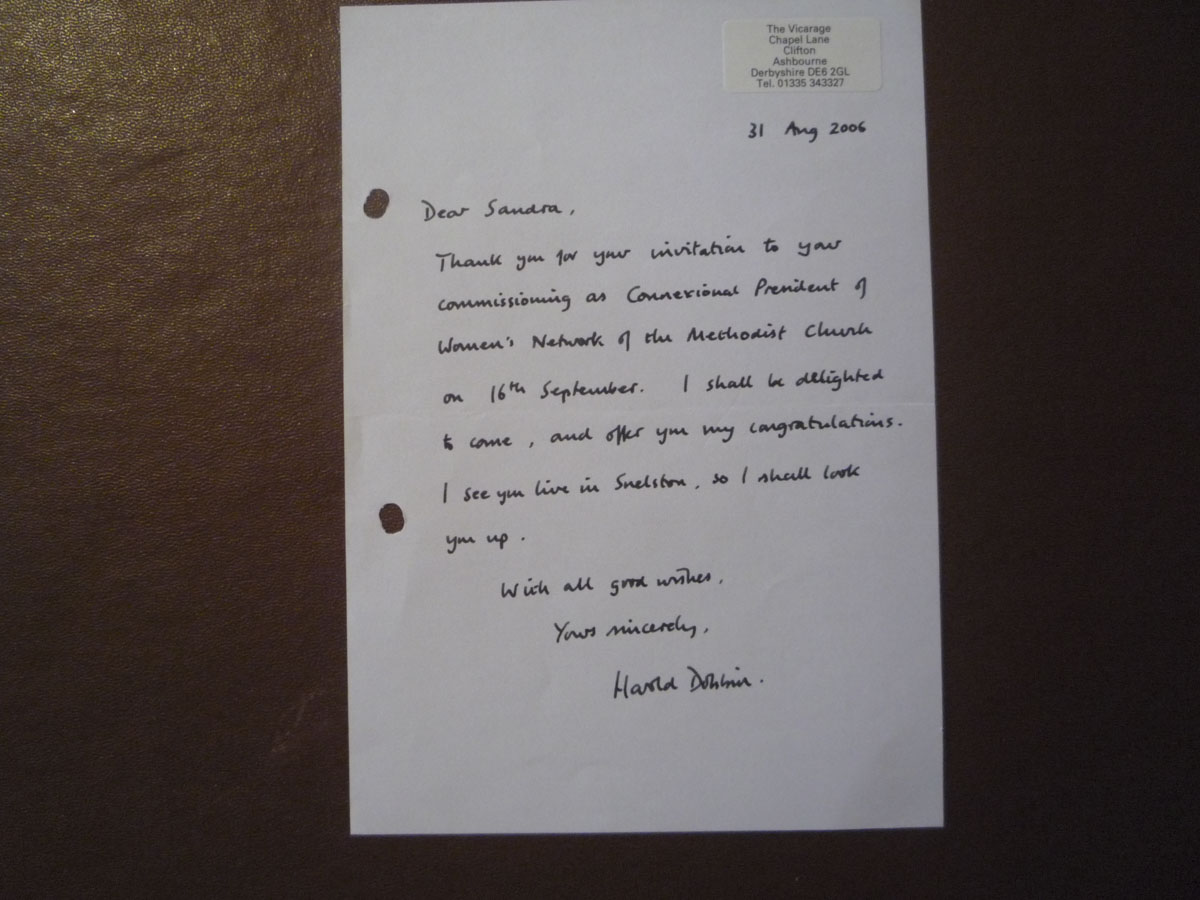 The Vicarage
Chapel Lane
Clifton
Ashbourne
Derbyshire DE6 2GL
Tel. 01335 343327
31 Aug 2006
Dear Sandra,
Thank you for your invitation to your
commissioning as Connexional President of
Women's Network of the Methodist Church
on 16th September. I shall be delighted
to come, and offer you my congratulations.
I see you live in Snelston, so I shall look
you up.
With all good wishes,
Yours sincerely,
Harold Dobbin.